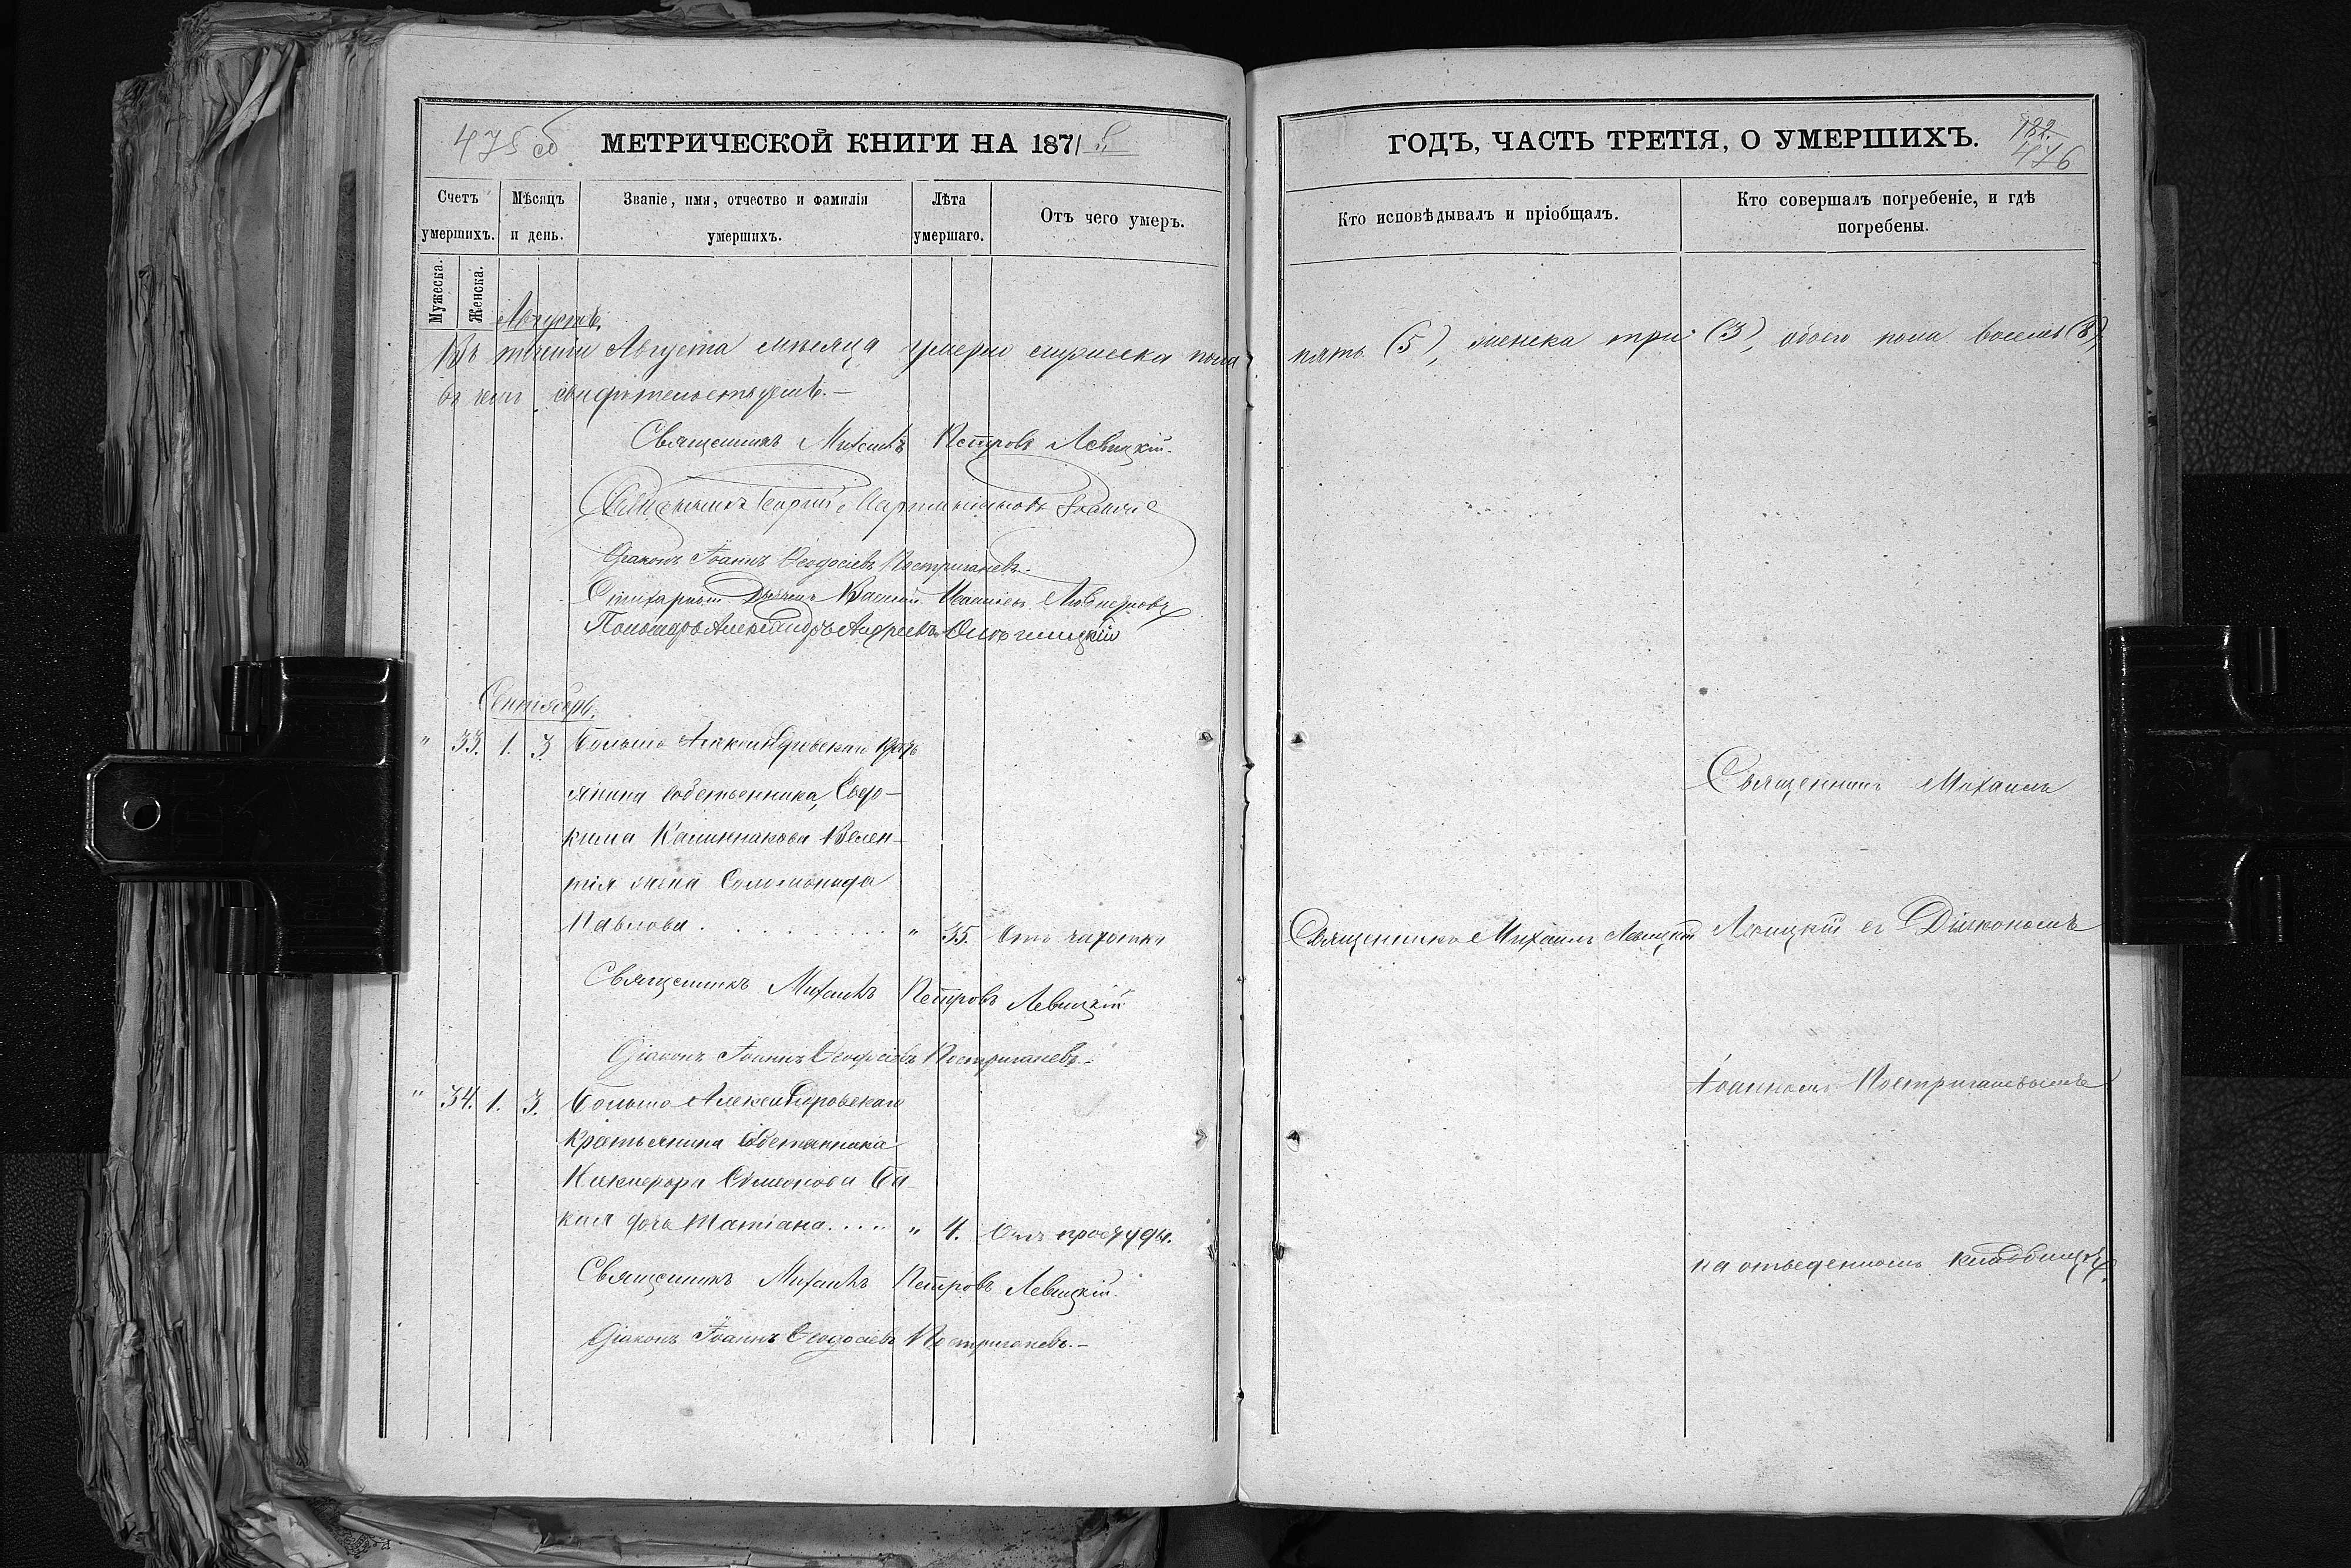 475 об.
МЕТРИЧЕСКОЙ КНИГИ НА 1871
ГОДЪ, ЧАСТЬ ТРЕТІЯ, О УМЕРШИХЪ.
182
476
Счетъ умершихъ.
Мужеска.
Женска.
Мѣсяцъ и день.
Званіе, имя, отчество и фамилія умершихъ.
Лѣта умершаго.
Отъ чего умеръ.
Кто исповѣдывалъ и пріобщалъ.
Кто совершалъ погребеніе, и гдѣ погребены.
Августъ.
Въ теченіи Августа мѣсяца умерло мужеска пола пять (5), женска три (3), обоего пола восемь (8),
въ чемъ свидѣтельствуемъ.—
Священникъ Михаилъ Петровъ Левицкій.
Священникъ Георгій
Діаконъ Іоаннъ Ѳеодосіевъ Постригачевъ.
Стихарный Дьячекъ Василій
Пономарь Александръ Андреевъ
Сентябрь.
" 33. 1. 3. Больше Александровскаго кресть-
янина собственника, Евдо-
кима Каллинникова Велен-
тія жена Соломонида
Павлова . . . . . . . . . . " 35. Отъ чахотки
Священникъ Михаилъ Левицкій
Священникъ Михаилъ
Левицкій съ Діакономъ
Священникъ Михаилъ Петровъ Левицкій
Діаконъ Іоаннъ Ѳеодосіевъ Постригачевъ.
Іоанномъ Постригачевымъ
" 34. 1. 3. Больше Александровскаго
крестьянина собственника
Никифора Симеонова Ба-
кія дочь Татіана . . . . " 4. Отъ простуды.
на отведенномъ кладбищѣ.
Священникъ Михаилъ Петровъ Левицкій.
Діаконъ Іоаннъ Ѳеодосіевъ Постригачевъ.—